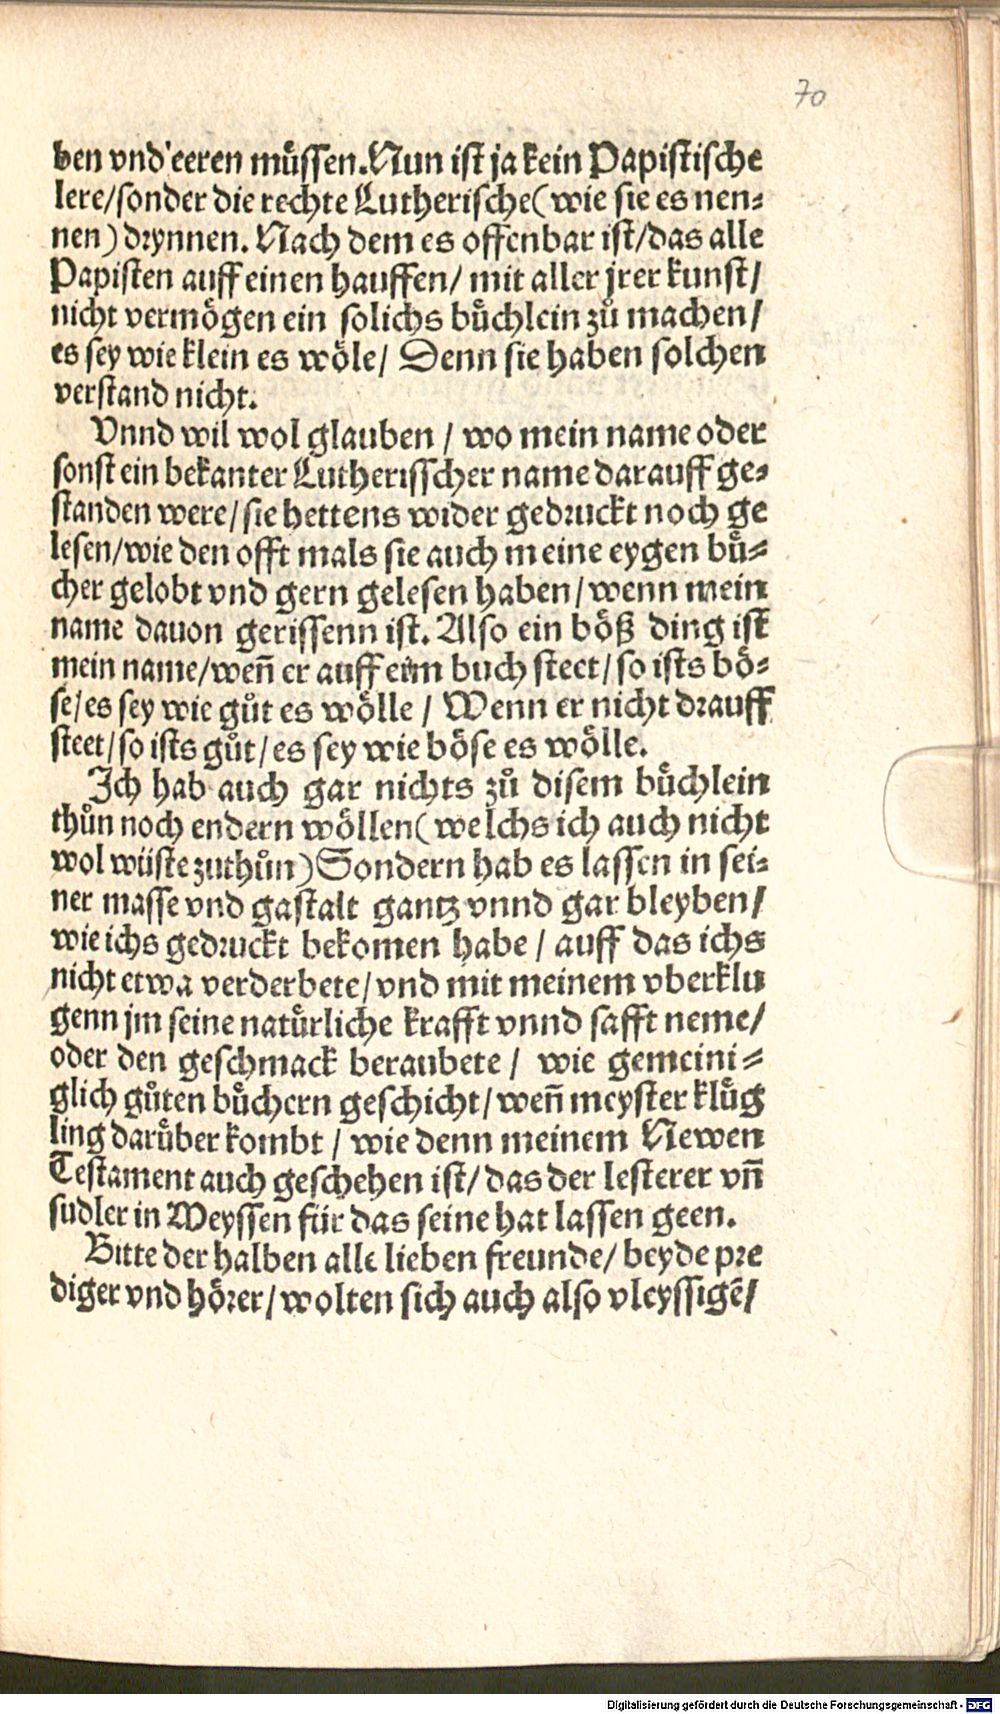 70
ben vnd eeren muͤssen. Nun ist ja kein Papistische
lere/ sonder die rechte Lutherische (wie sie es nen-
nen) drynnen. Nach dem es offenbar ist/ das alle
Papisten auff einen hauffen/ mit aller jrer kunst/
nicht vermoͤgen ein solichs buͤchlein zuͦ machen/
es sey wie klein es woͤle/ Denn sie haben solchen
verstand nicht.
Vnnd wil wol glauben / wo mein name oder
sonst ein bekanter Lutherisscher name darauff ge-
standen were/ sie hettens wider gedruckt noch ge
lesen/ wie den offt mals sie auch meine eygen buͤ-
cher gelobt vnd gern gelesen haben/ wenn mein
name dauon gerissenn ist. Also ein boͤß ding ist
mein name/ wen̄ er auff eim buch steet/ so ists boͤ-
se/ es sey wie guͦt es woͤlle / Wenn er nicht drauff
steet/ so ists guͦt/ es sey wie boͤse es woͤlle.
Ich hab auch gar nichts zuͦ disem buͤchlein
thuͦn noch endern woͤllen (welchs ich auch nicht
wol wuͤste zuthuͦn) Sondern hab es lassen in sei-
ner masse vnd gastalt gantz vnnd gar bleyben/
wie ichs gedruckt bekomen habe / auff das ichs
nicht etwa verderbete/ vnd mit meinem vberklu
genn jm seine natuͤrliche krafft vnnd safft neme/
oder den geschmack beraubete / wie gemeini-
glich guͦten buͤchern geschicht/ wen̄ meyster kluͤg
ling daruͤber kombt / wie denn meinem Newen
Testament auch geschehen ist/ das der lesterer vn̄
sudler in Meyssen fuͤr das seine hat lassen geen.
Bitte der halben alle lieben freunde/ beyde pre
diger vnd hoͤrer/ wolten sich auch also vleyssigē/
Digitalisierung gefördert durch die Deutsche Forschungsgemeinschaft - DFG